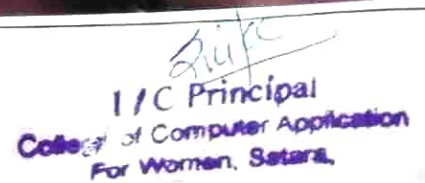 I/C Principal
College of Computer Application
For Women, Satara,